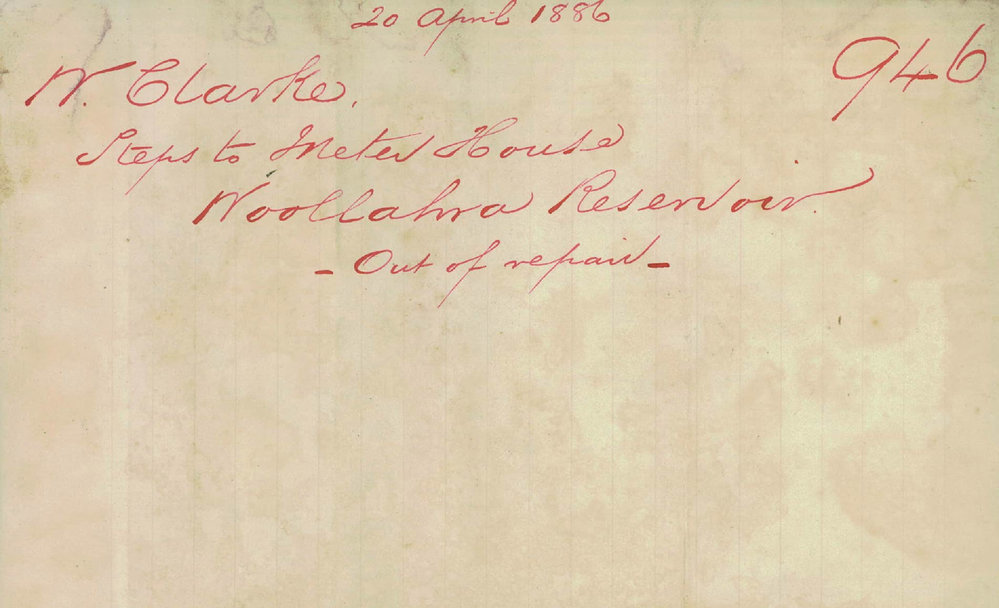 20 April 1886
946
W. Clarke.
Steps to Meter House
Woollahra Reservoir.
- Out of repair -